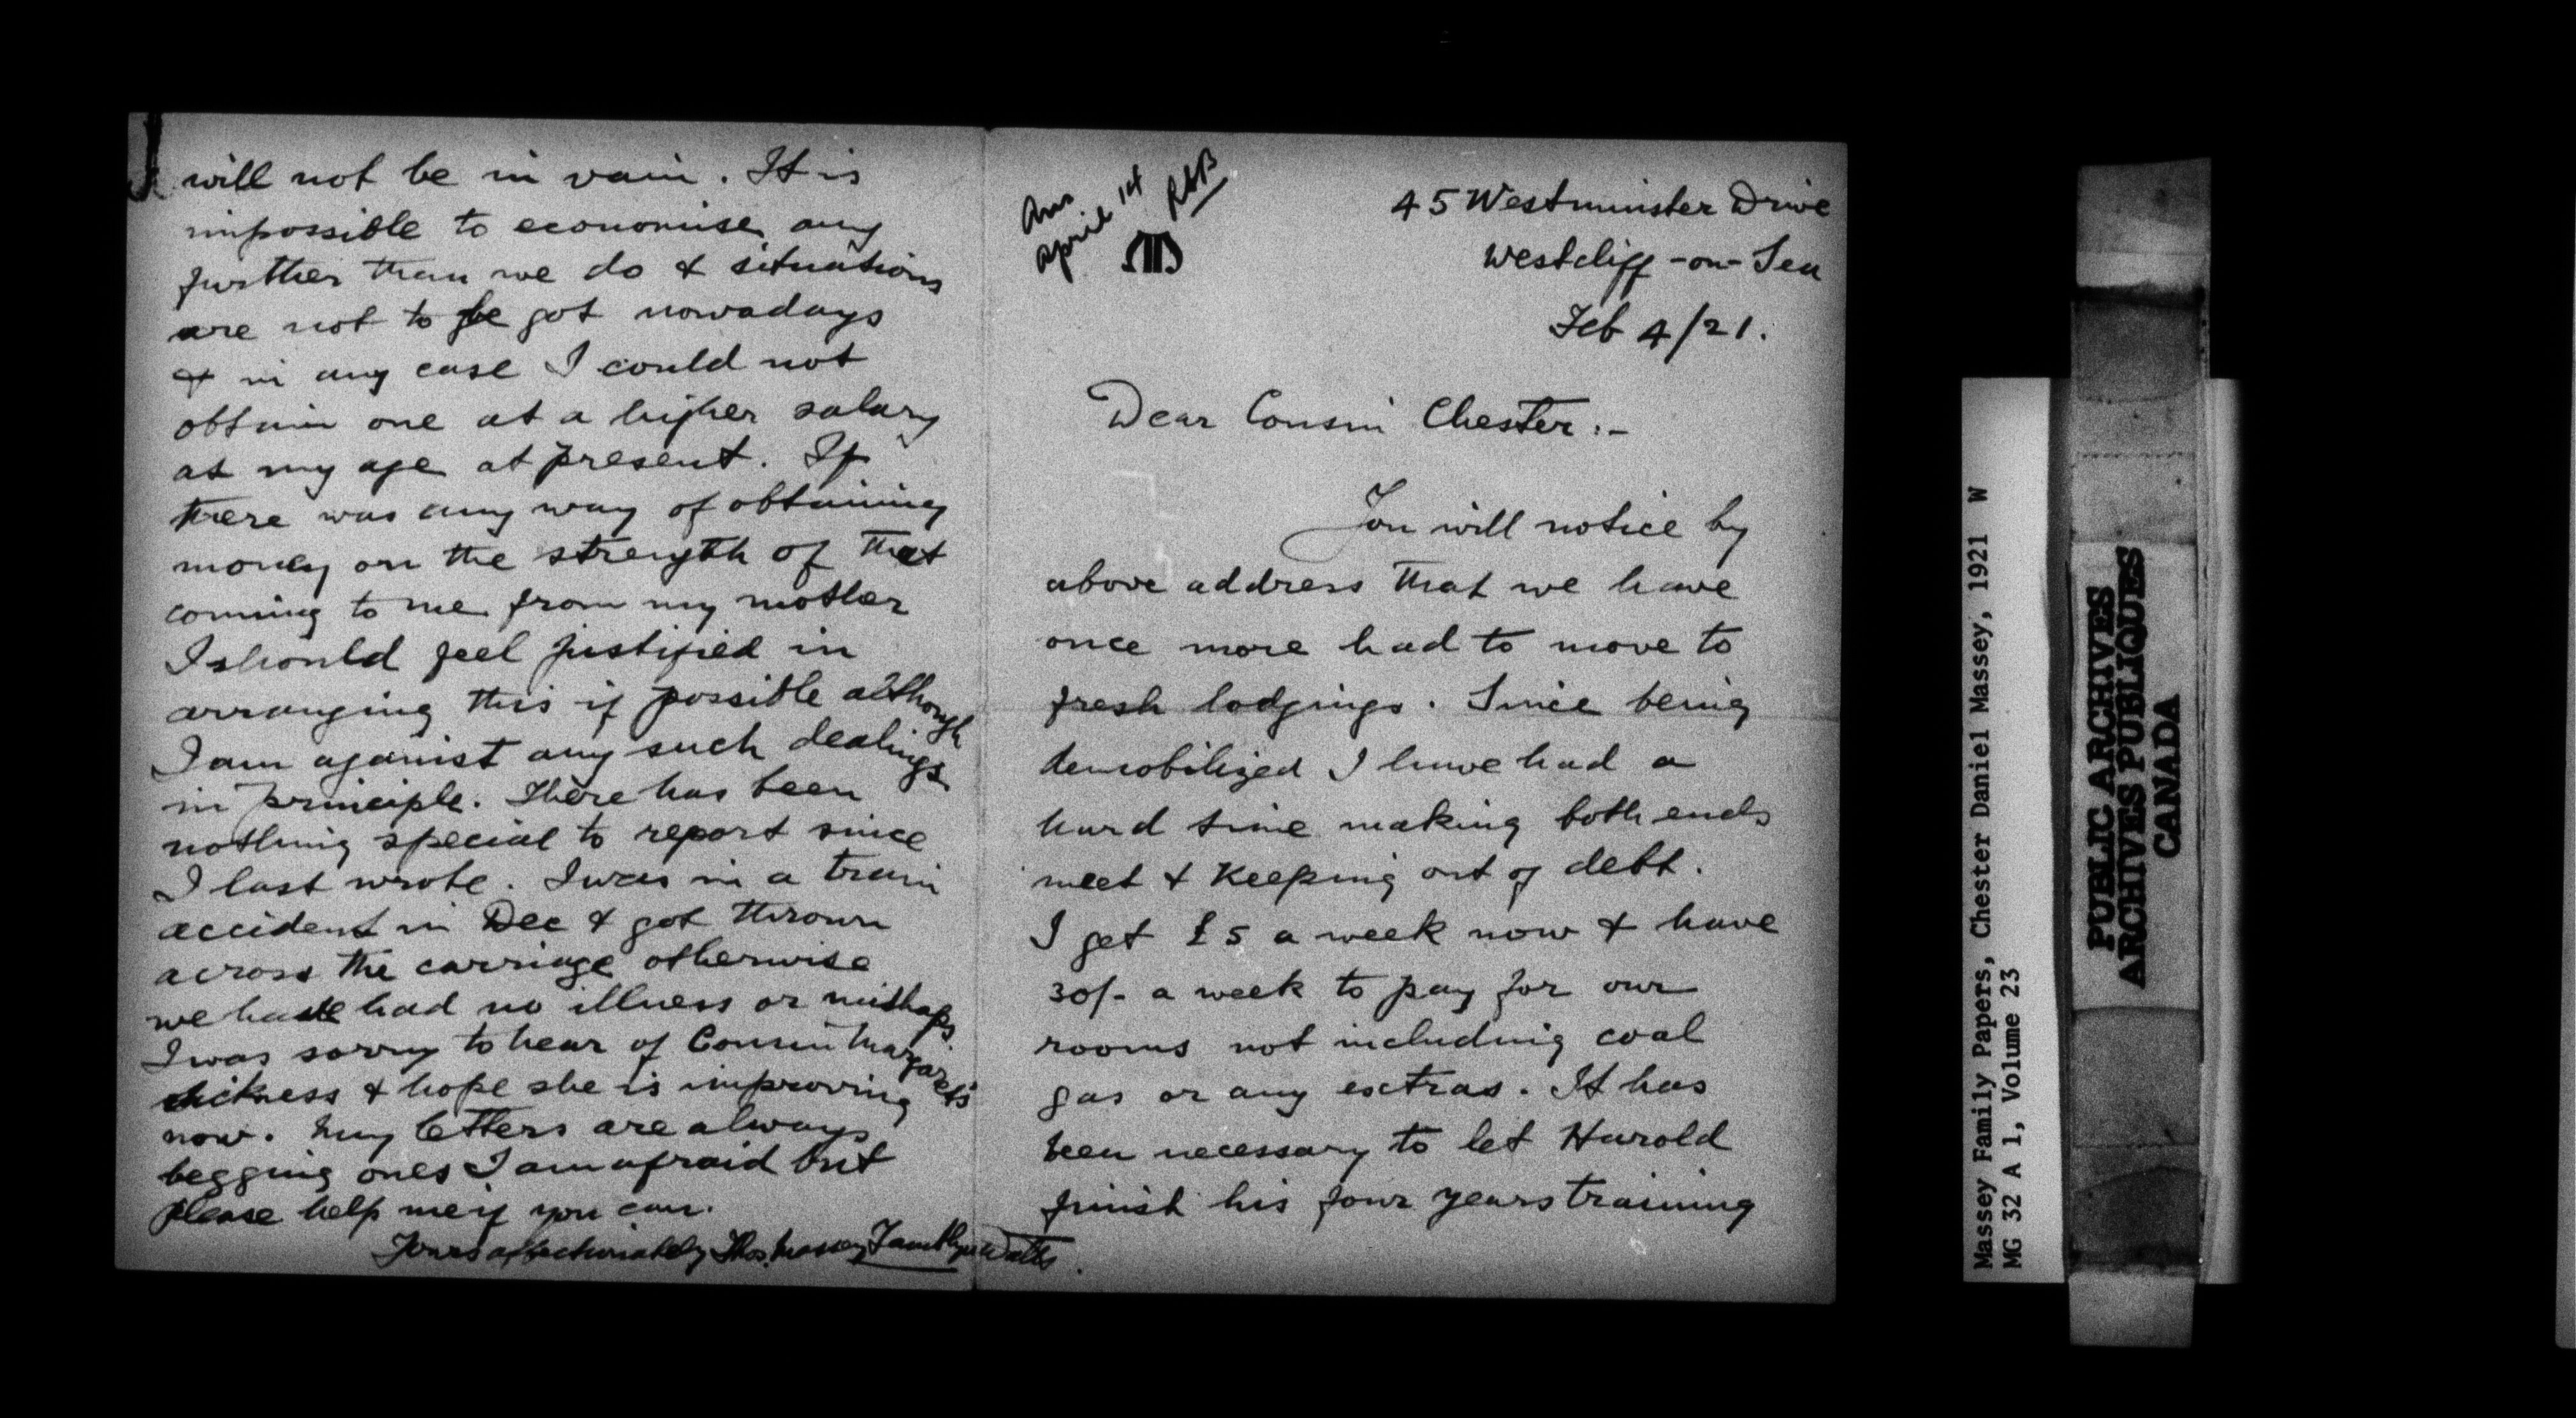 will not be in vain. It is
impossible to economise any
further than we do & situations
are not to be got nowadays
& in any case I could not
obtain one at a higher salary
at my age at present. If
there was any way of obtaining
money on the strength of that
coming to me from my mother
I should feel justified in
arranging this if possible although
I am against any such dealings
in principle. There has been
nothing special to report since
I last wrote. I was in a train
accident in Dec & got thrown
across the carriage otherwise
we have had no illness or mishaps
I was sorry to hear of Cousin Margaret's
sickness & hope she is improving
now. My letters are always
begging ones I am afraid but
please help me if you can.
Yours affectionately Thos. Massey Watts
Ans
April 14
45 Westminster Drive
Westcliff-on-Sea
Feb 4/21.
Dear Cousin Chester:-
You will notice by
above address that we have
once more had to move to
fresh lodgings. Since being
demobilized I have had a
hard time making both ends
meet & keeping out of debt.
I get £5 a week now & have
30/- a week to pay for our
rooms not including coal
gas or any extras. It has
been necessary to let Harold
finish his four years training
Massey Family Papers, Chester Daniel Massey, 1921 W
MG 32 A 1, Volume 23
PUBLIC ARCHIVES
ARCHIVES PUBLIQUES
CANADA